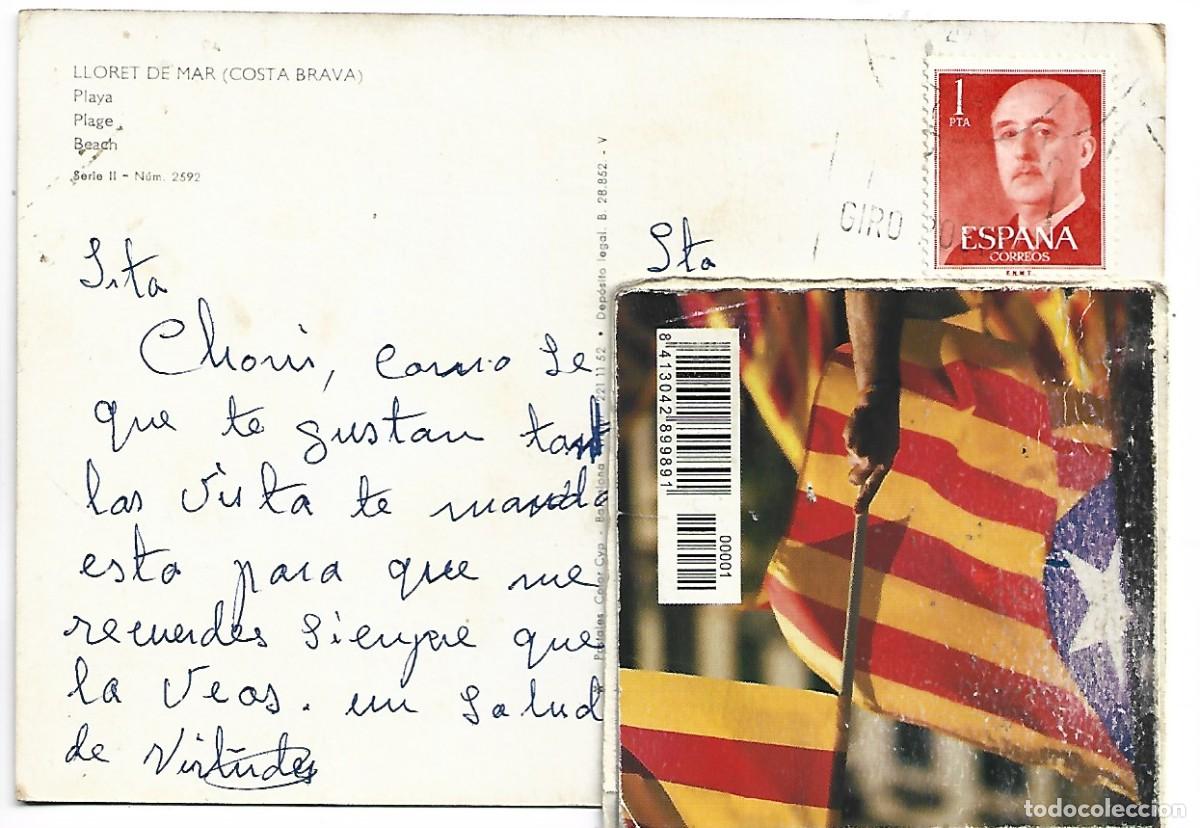 LLORET DE MAR (COSTA BRAVA)
Playa
Plage
Beach
Serie II - Núm. 2592
Sita
Choni, como se
que te gustan tant
las vista te manda
esta para que me
recuerdes siempre que
la veas. un salud
de Virtudes
Postales Color Cyp - Barcelona 221 11 52 • Depósito legal. B. 28.852. - V
Sta
1
PTA
ESPAÑA
CORREOS
F.N.M.T.
GIRO
8 413042 899891
00001
todocoleccion